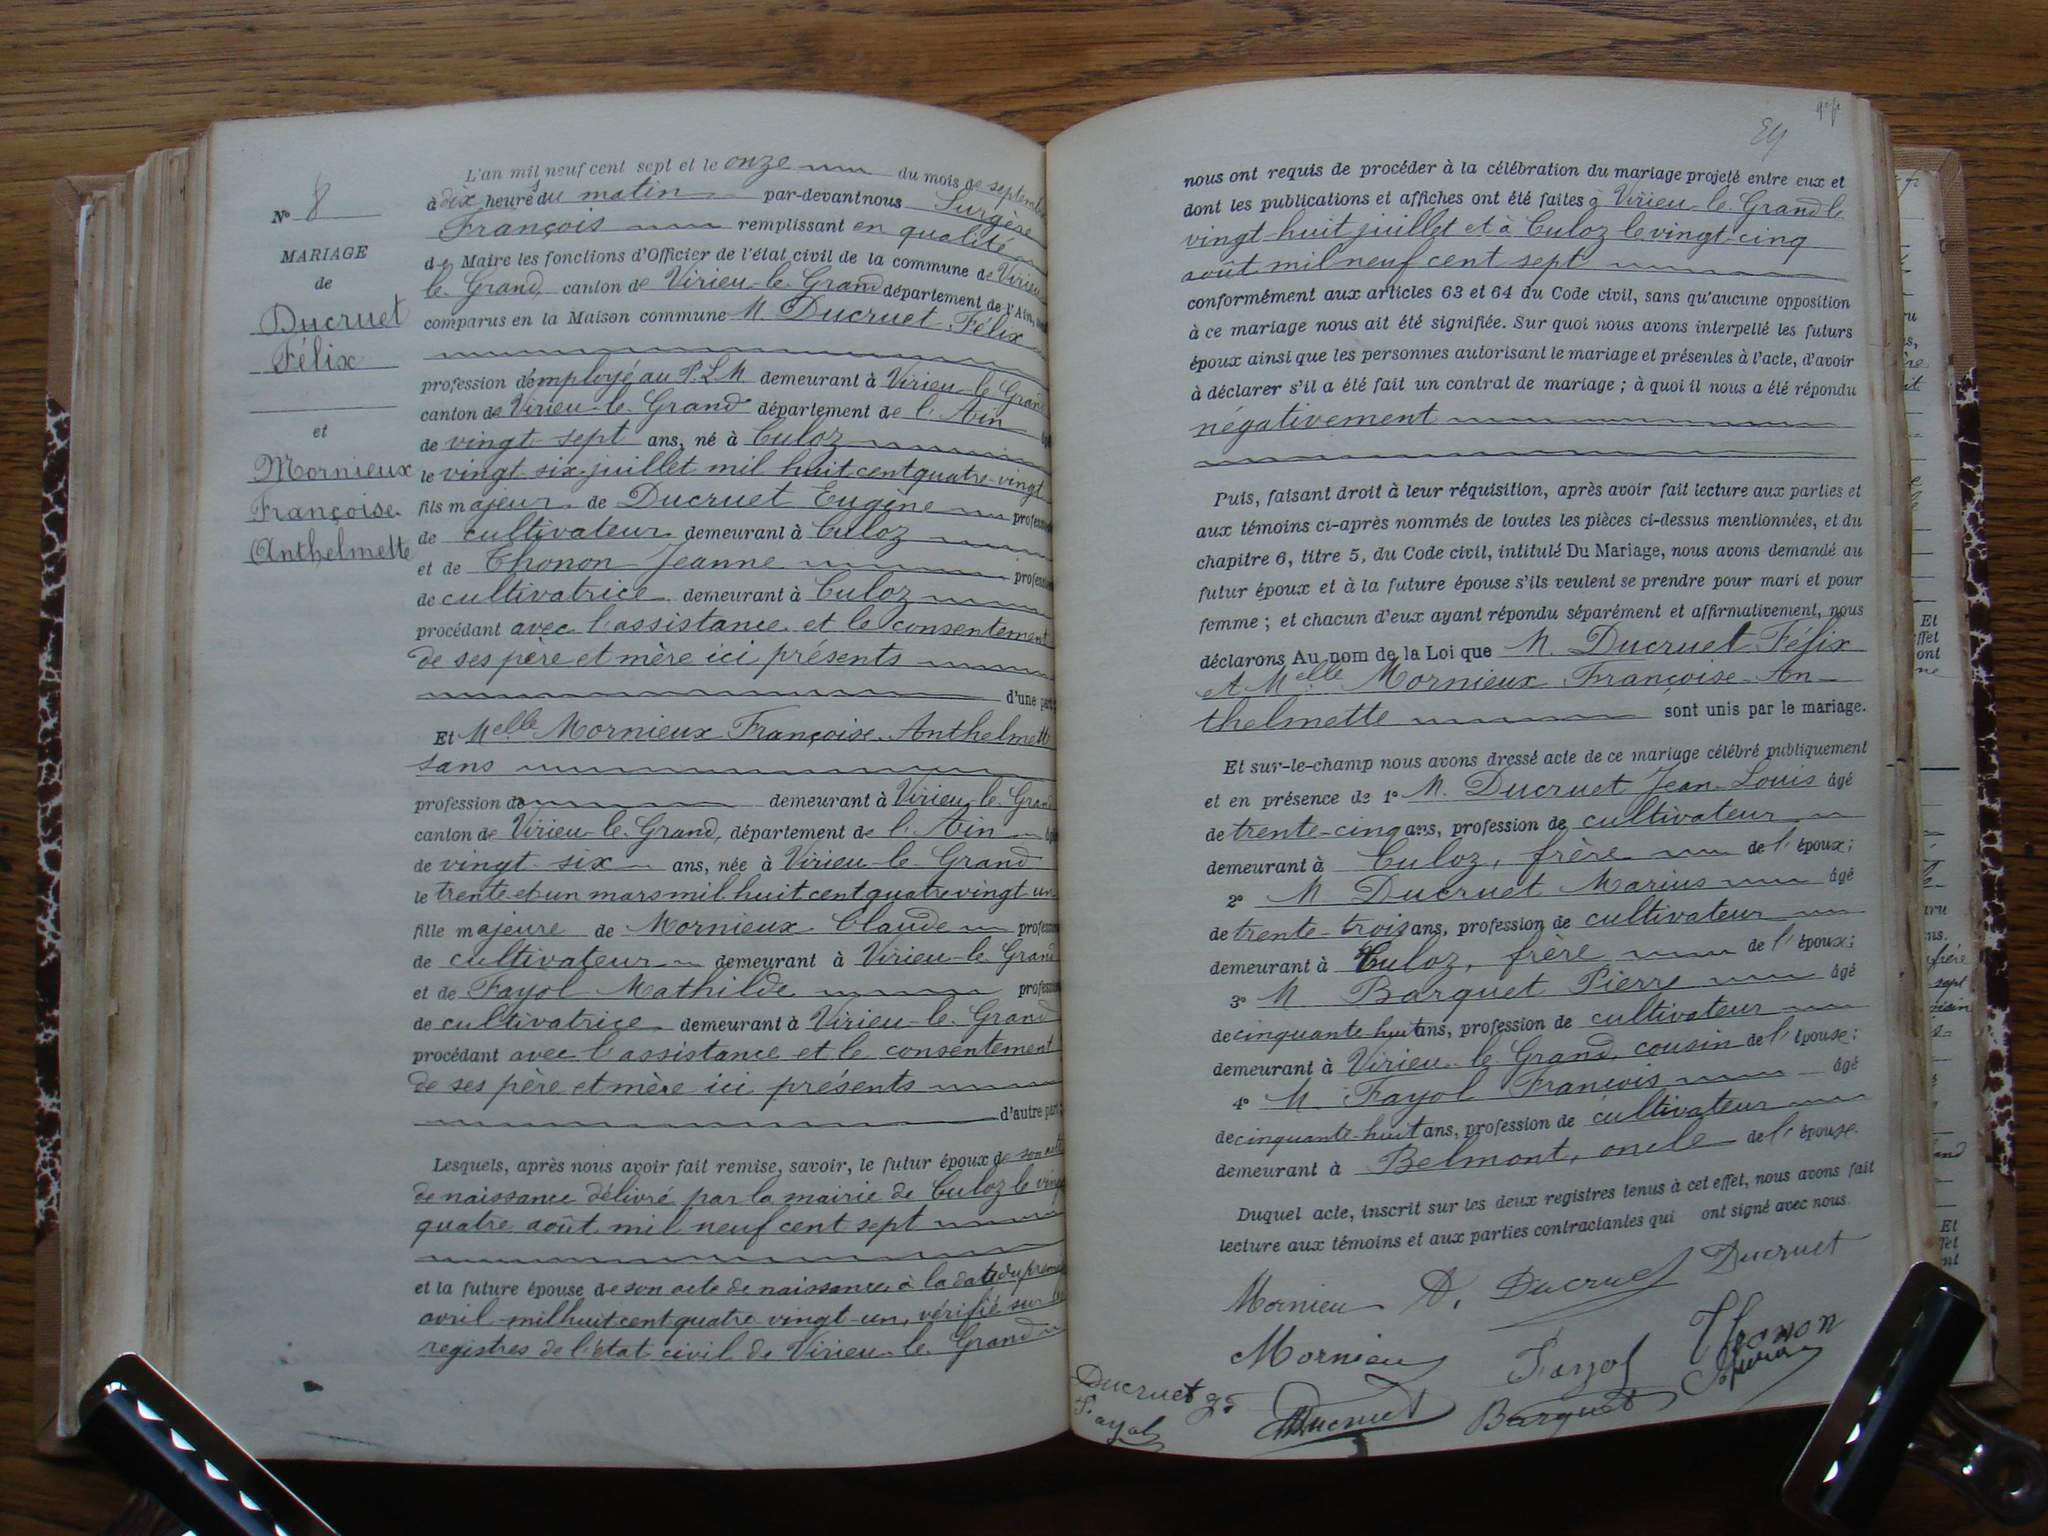 N° 8
MARIAGE
de
Ducruet
Félix
et
Mornieux
Françoise-
Anthelmette
L'an mil neuf cent sept et le onze du mois de septembre
à dix heures du matin par-devant nous Surgère
François remplissant en qualité
de Maire les fonctions d'Officier de l'état civil de la commune de Virieu
le Grand, canton de Virieu-le-Grand département de l'Ain,
comparus en la Maison commune M. Ducruet Félix
profession d'employé au P.L.M. demeurant à Virieu-le-Grand
canton de Virieu-le-Grand département de l'Ain
de vingt-sept ans, né à Culoz
le vingt-six juillet mil huit cent quatre-vingt
fils majeur de Ducruet Eugène profession
de cultivateur demeurant à Culoz
et de Thonon Jeanne profession
de cultivatrice demeurant à Culoz
procédant avec l'assistance et le consentement
de ses père et mère ici présents
d'une part;
Et Melle Mornieux Françoise-Anthelmette
sans
profession de demeurant à Virieu-le-Grand
canton de Virieu-le-Grand, département de l'Ain
de vingt-six ans, née à Virieu-le-Grand
le trente et un mars mil huit cent quatre vingt un
fille majeure de Mornieux Claude profession
de cultivateur demeurant à Virieu-le-Grand
et de Fayol Mathilde profession
de cultivatrice demeurant à Virieu-le-Grand
procédant avec l'assistance et le consentement
de ses père et mère ici présents
d'autre part;
Lesquels, après nous avoir fait remise, savoir, le futur époux de son acte
de naissance délivré par la mairie de Culoz le vingt
quatre août mil neuf cent sept
et la future épouse de son acte de naissance à la date du premier
avril mil huit cent quatre vingt-un, vérifié sur les
registres de l'état civil de Virieu-le-Grand
nous ont requis de procéder à la célébration du mariage projeté entre eux et
dont les publications et affiches ont été faites à Virieu-le-Grand le
vingt-huit juillet et à Culoz le vingt-cinq
août mil neuf cent sept
conformément aux articles 63 et 64 du Code civil, sans qu'aucune opposition
à ce mariage nous ait été signifiée. Sur quoi nous avons interpellé les futurs
époux ainsi que les personnes autorisant le mariage et présentes à l'acte, d'avoir
à déclarer s'il a été fait un contrat de mariage; à quoi il nous a été répondu
négativement
Puis, faisant droit à leur réquisition, après avoir fait lecture aux parties et
aux témoins ci-après nommés de toutes les pièces ci-dessus mentionnées, et du
chapitre 6, titre 5, du Code civil, intitulé Du Mariage, nous avons demandé au
futur époux et à la future épouse s'ils veulent se prendre pour mari et pour
femme; et chacun d'eux ayant répondu séparément et affirmativement, nous
déclarons Au nom de la Loi que M. Ducruet Félix
et Melle Mornieux Françoise-An-
thelmette sont unis par le mariage.
Et sur-le-champ nous avons dressé acte de ce mariage célébré publiquement
et en présence de 1° M. Ducruet Jean-Louis âgé
de trente-cinq ans, profession de cultivateur
demeurant à Culoz, frère de l'époux;
2° M Ducruet Marius âgé
de trente-trois ans, profession de cultivateur
demeurant à Culoz, frère de l'époux;
3° M. Barquet Pierre âgé
de cinquante-huit ans, profession de cultivateur
demeurant à Virieu-le-Grand, cousin de l'épouse;
4° M. Fayol François âgé
de cinquante-huit ans, profession de cultivateur
demeurant à Belmont, oncle de l'épouse.
Duquel acte, inscrit sur les deux registres tenus à cet effet, nous avons fait
lecture aux témoins et aux parties contractantes qui ont signé avec nous.
Mornieu D. Ducruet Ducruet
Mornieux Fayol Thonon
Ducruet
Fayol Ducruet Barquet